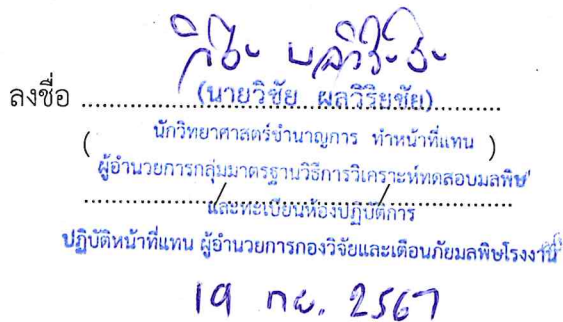 ลงชื่อ ........(นายวิชัย ผลวิริยชัย)........
( นักวิทยาศาสตร์ชำนาญการ ทำหน้าที่แทน )
ผู้อำนวยการกลุ่มมาตรฐานวิธีการวิเคราะห์ทดสอบมลพิษ
......../................/........
และทะเบียนห้องปฏิบัติการ
ปฏิบัติหน้าที่แทน ผู้อำนวยการกองวิจัยและเตือนภัยมลพิษโรงงาน
19 กย. 2567